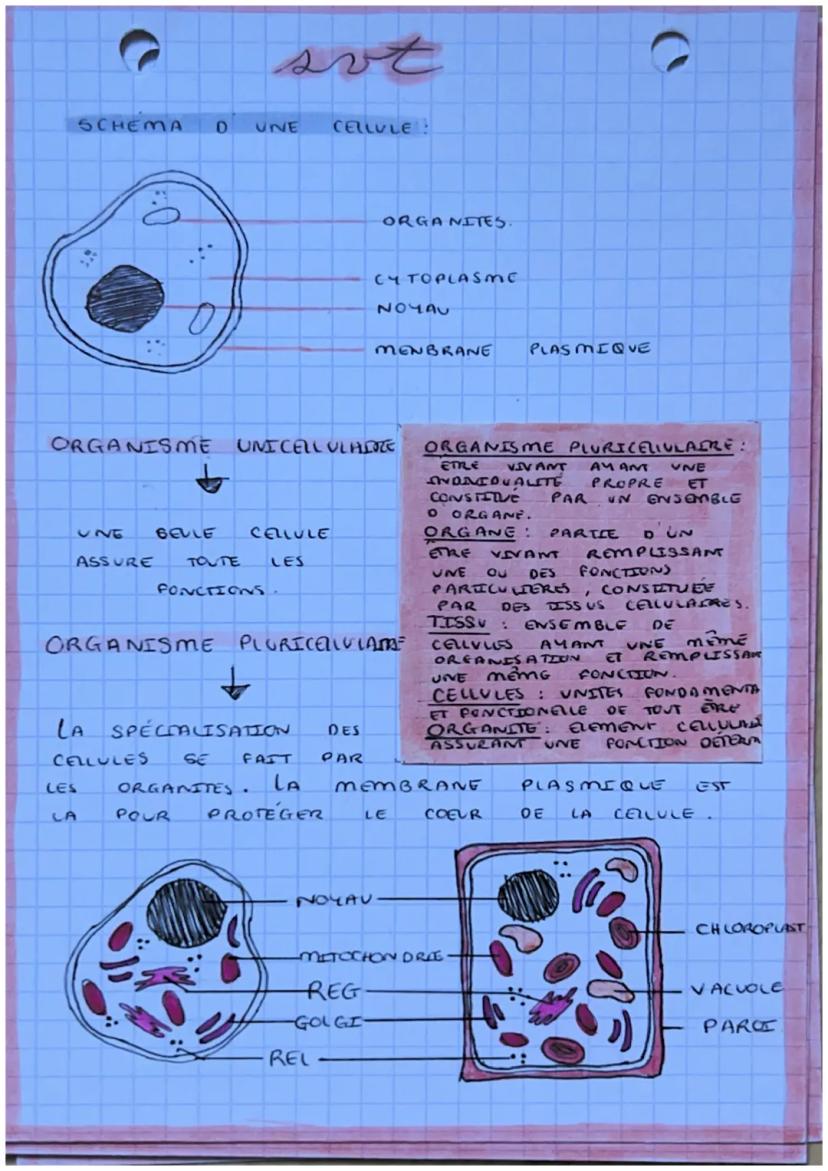 svt
SCHÉMA D'UNE CELLULE :
ORGANITES.
CYTOPLASME
NOYAU
MENBRANE PLASMIQUE
ORGANISME UNICELLULAIRE
UNE SEULE CELLULE
ASSURE TOUTE LES
FONCTIONS.
ORGANISME PLURICELLULAIRE
LA SPÉCIALISATION DES
CELLULES SE FAIT PAR
LES ORGANITES. LA MEMBRANE PLASMIQUE EST
LA POUR PROTÉGER LE COEUR DE LA CELLULE.
ORGANISME PLURICELLULAIRE :
ÊTRE VIVANT AYANT UNE
INDIVIDUALITÉ PROPRE ET
CONSTITUÉ PAR UN ENSEMBLE
D'ORGANE.
ORGANE : PARTIE D'UN
ÊTRE VIVANT REMPLISSANT
UNE OU DES FONCTIONS
PARTICULIÈRES, CONSTITUÉE
PAR DES TISSUS CELLULAIRES.
TISSU : ENSEMBLE DE
CELLULES AYANT UNE MÊME
ORGANISATION ET REMPLISSAN
UNE MÊME FONCTION.
CELLULES : UNITES FONDAMENTA
ET FONCTIONELLE DE TOUT ÊTRE
ORGANITE : ELEMENT CELLULAI
ASSURANT UNE FONCTION DÉTERM
NOYAU
MITOCHONDRIE
REG
GOLGI
REL
CHLOROPLAST
VACUOLE
PAROI